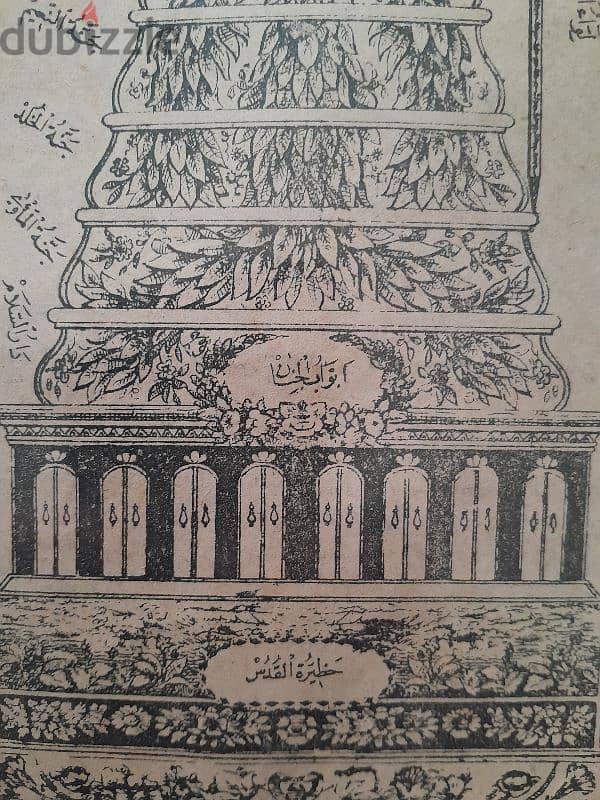 dubizzle
جَنَّةُ الْخُلْدِ
جَنَّةُ الْمَأْوٰى
دَارُ السَّلَامِ
ابوابُ الجنان
حَظِيْرَةُ الْقُدُسْ